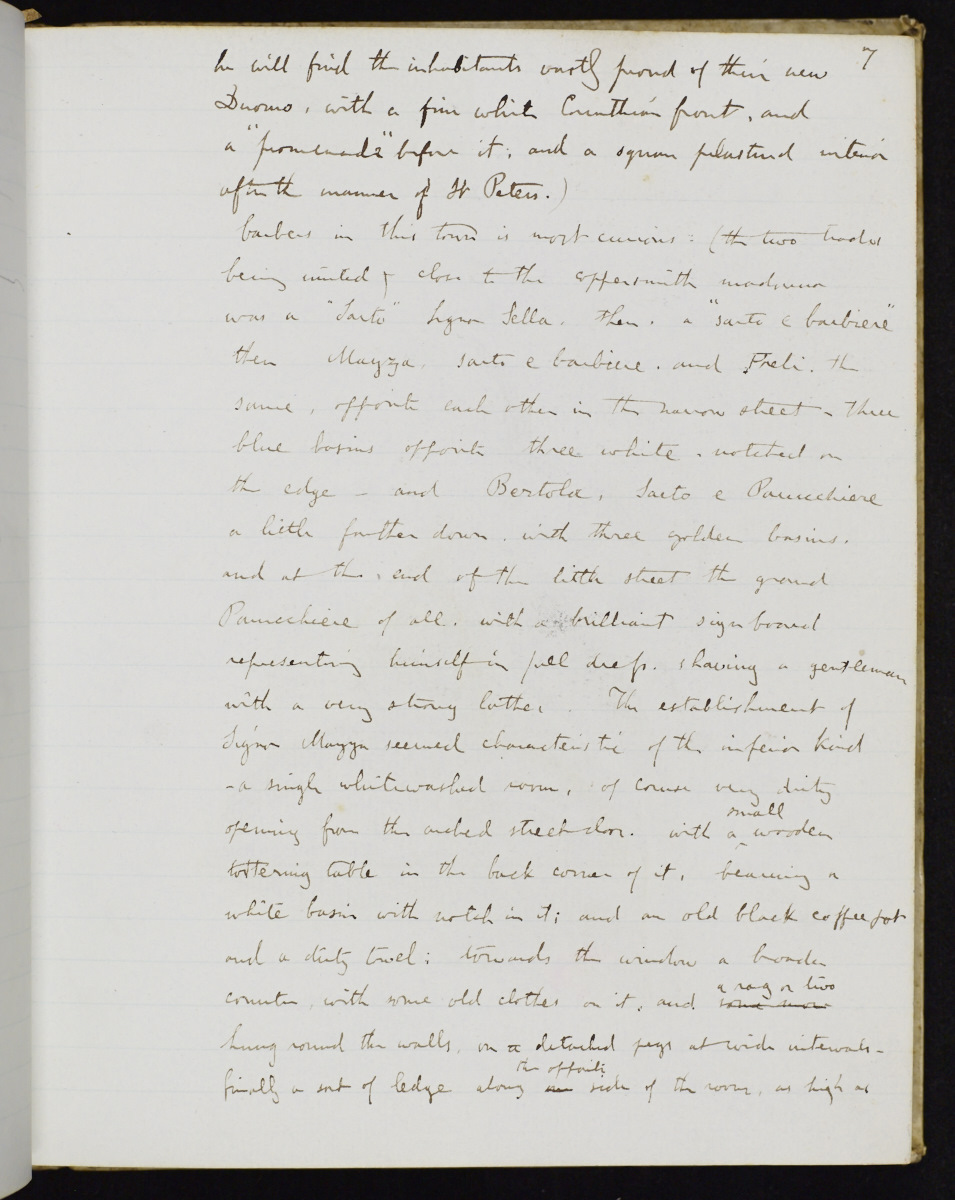 7
he will find the inhabitants vastly proud of their new
Duomo, with a fine white Corinthian front, and
a "promenade" before it; and a square plastered interior
after the manner of St Peters.)
barbers in this town is most curious: (the two trades
being united) close to the coppersmith madonna
was a "Sarto" Signor Sella. then. a "sarto e barbiere"
then Mazza, sarto e barbiere. and Preli. the
same, opposite each other in the narrow street - three
blue basins opposite three white, notched on
the edge - and Bertola, Sarto e Parucchiere
a little farther down. with three golden basins.
and at the end of the little street the grand
Parucchiere of all. with a brilliant signboard
representing himself in full dress. shaving a gentleman
with a very strong lather. The establishment of
Signor Mazza seemed characteristic of the inferior kind
- a single whitewashed room, of course very dirty
opening from the arched street door. with a small wooden
tottering table in the back corner of it, bearing a
white basin with notch in it; and an old black coffee pot
and a dirty towel; towards the window a broader
counter, with some old clothes on it, and a rag or two some more
hung round the walls, on a detached pegs at wide intervals -
finally a sort of ledge along the opposite one side of the room, as high as